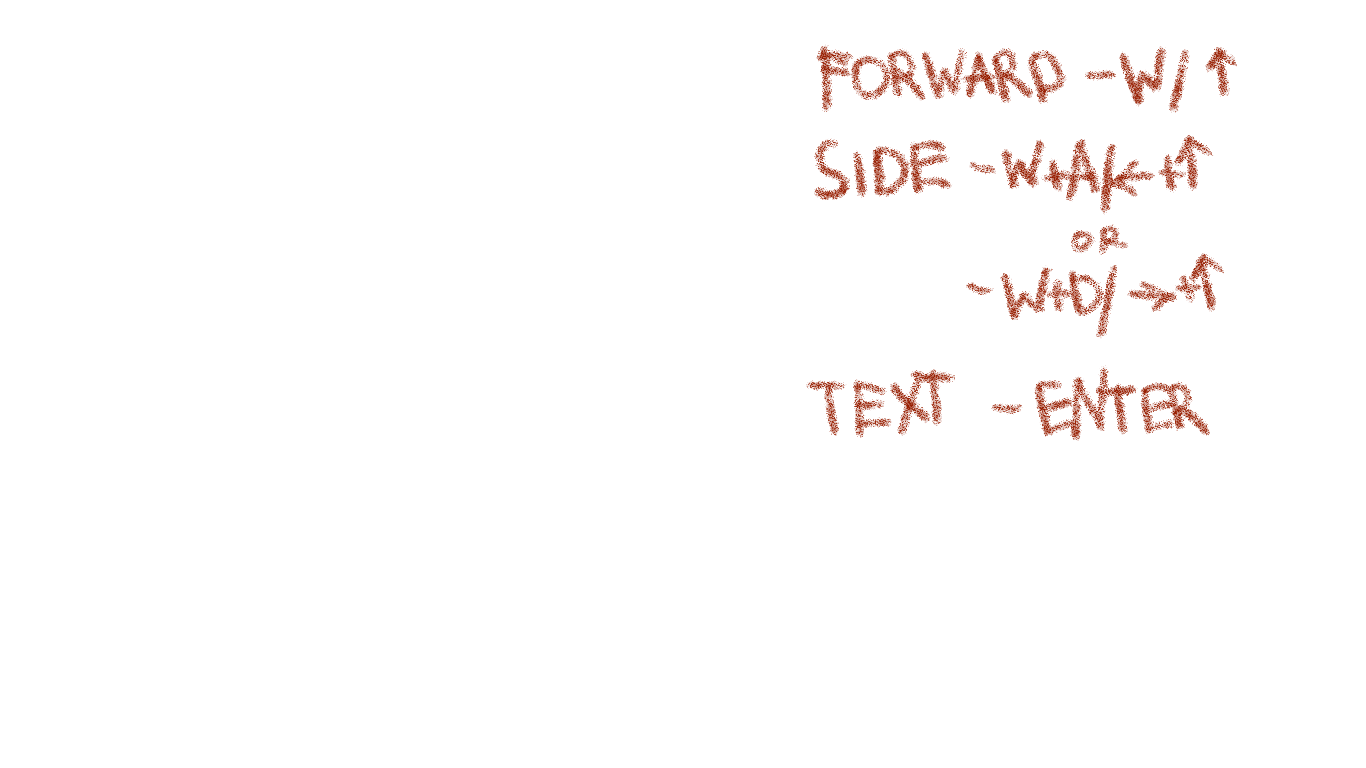 FORWARD - W/ ↑
SIDE - W+A/← + ↑
OR
- W+D/ → + ↑
TEXT - ENTER